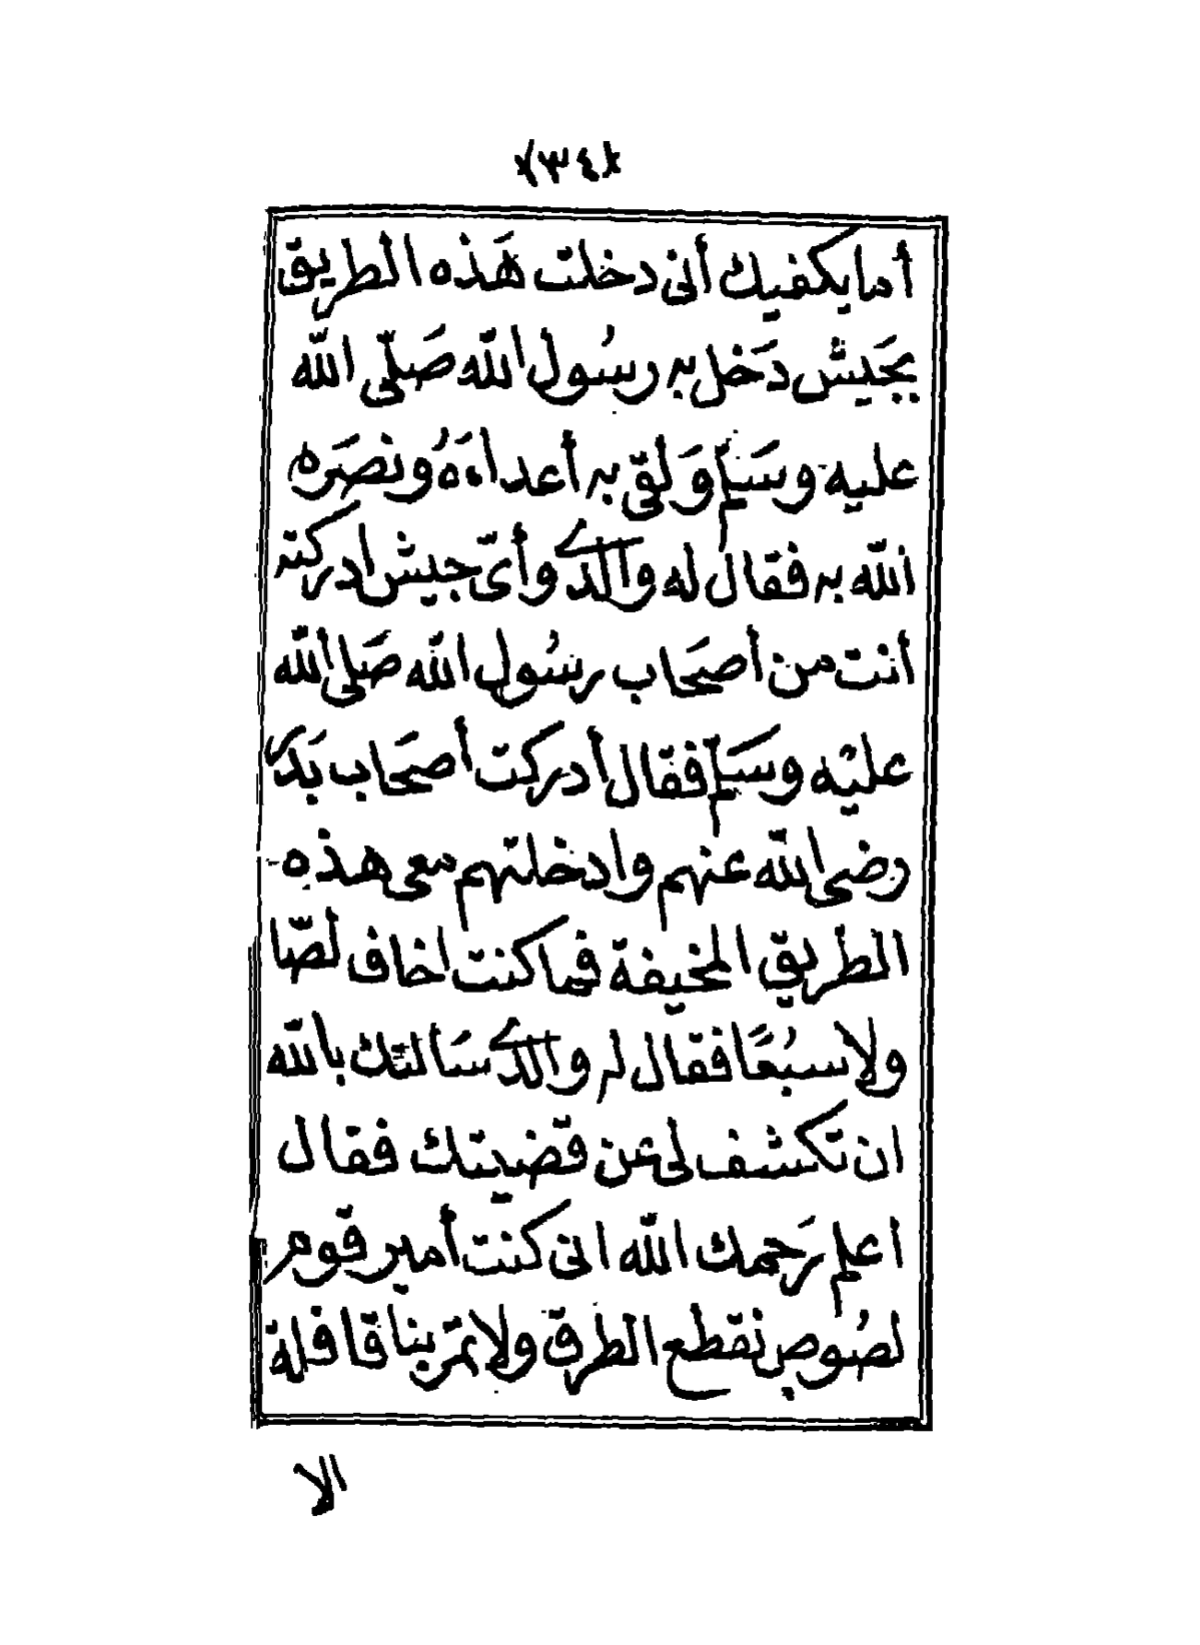 ﴿٣٤﴾
أما يكفيك أنى دخلت هَذه الطريق
بجَيش دَخل به رسُول اللّه صَلّى اللّه
عليه وسَلّم وَلقىّ به أعداءَهُ ونصَره
اللّه به فقال له والدي وأىّ جيش ادركته
أنت من أصحَاب رسُول اللّه صَلى اللّه
عليْه وسَلّم فقال أدركت أصحَاب بَدر
رضى اللّه عنهم وادخلتهم معى هذه
الطريق المخيفة فيما كنت اخاف لصّا
ولا سبُعًا فقال له والدي سَألتك باللّه
ان تكشف لى عن قضيتك فقال
اعلم رَحمك اللّه انى كنت أمير قوم
لصُوص نقطع الطرق ولا تمرّ بنا قافلة
الا